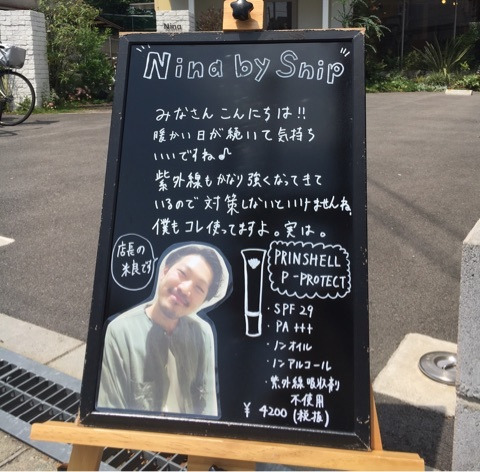 Nina
Nina by Snip
みなさん こんにちは!!
暖かい日が続いて気持ち
いいですね♪
紫外線もかなり強くなってきて
いるので対策しないといけませんね。
僕もコレ使ってますよ。実は。
店長の
米良です
PRINSHELL
P-PROTECT
・SPF 29
・PA +++
・ノンオイル
・ノンアルコール
・紫外線吸収剤
不使用
¥ 4200 (税抜)